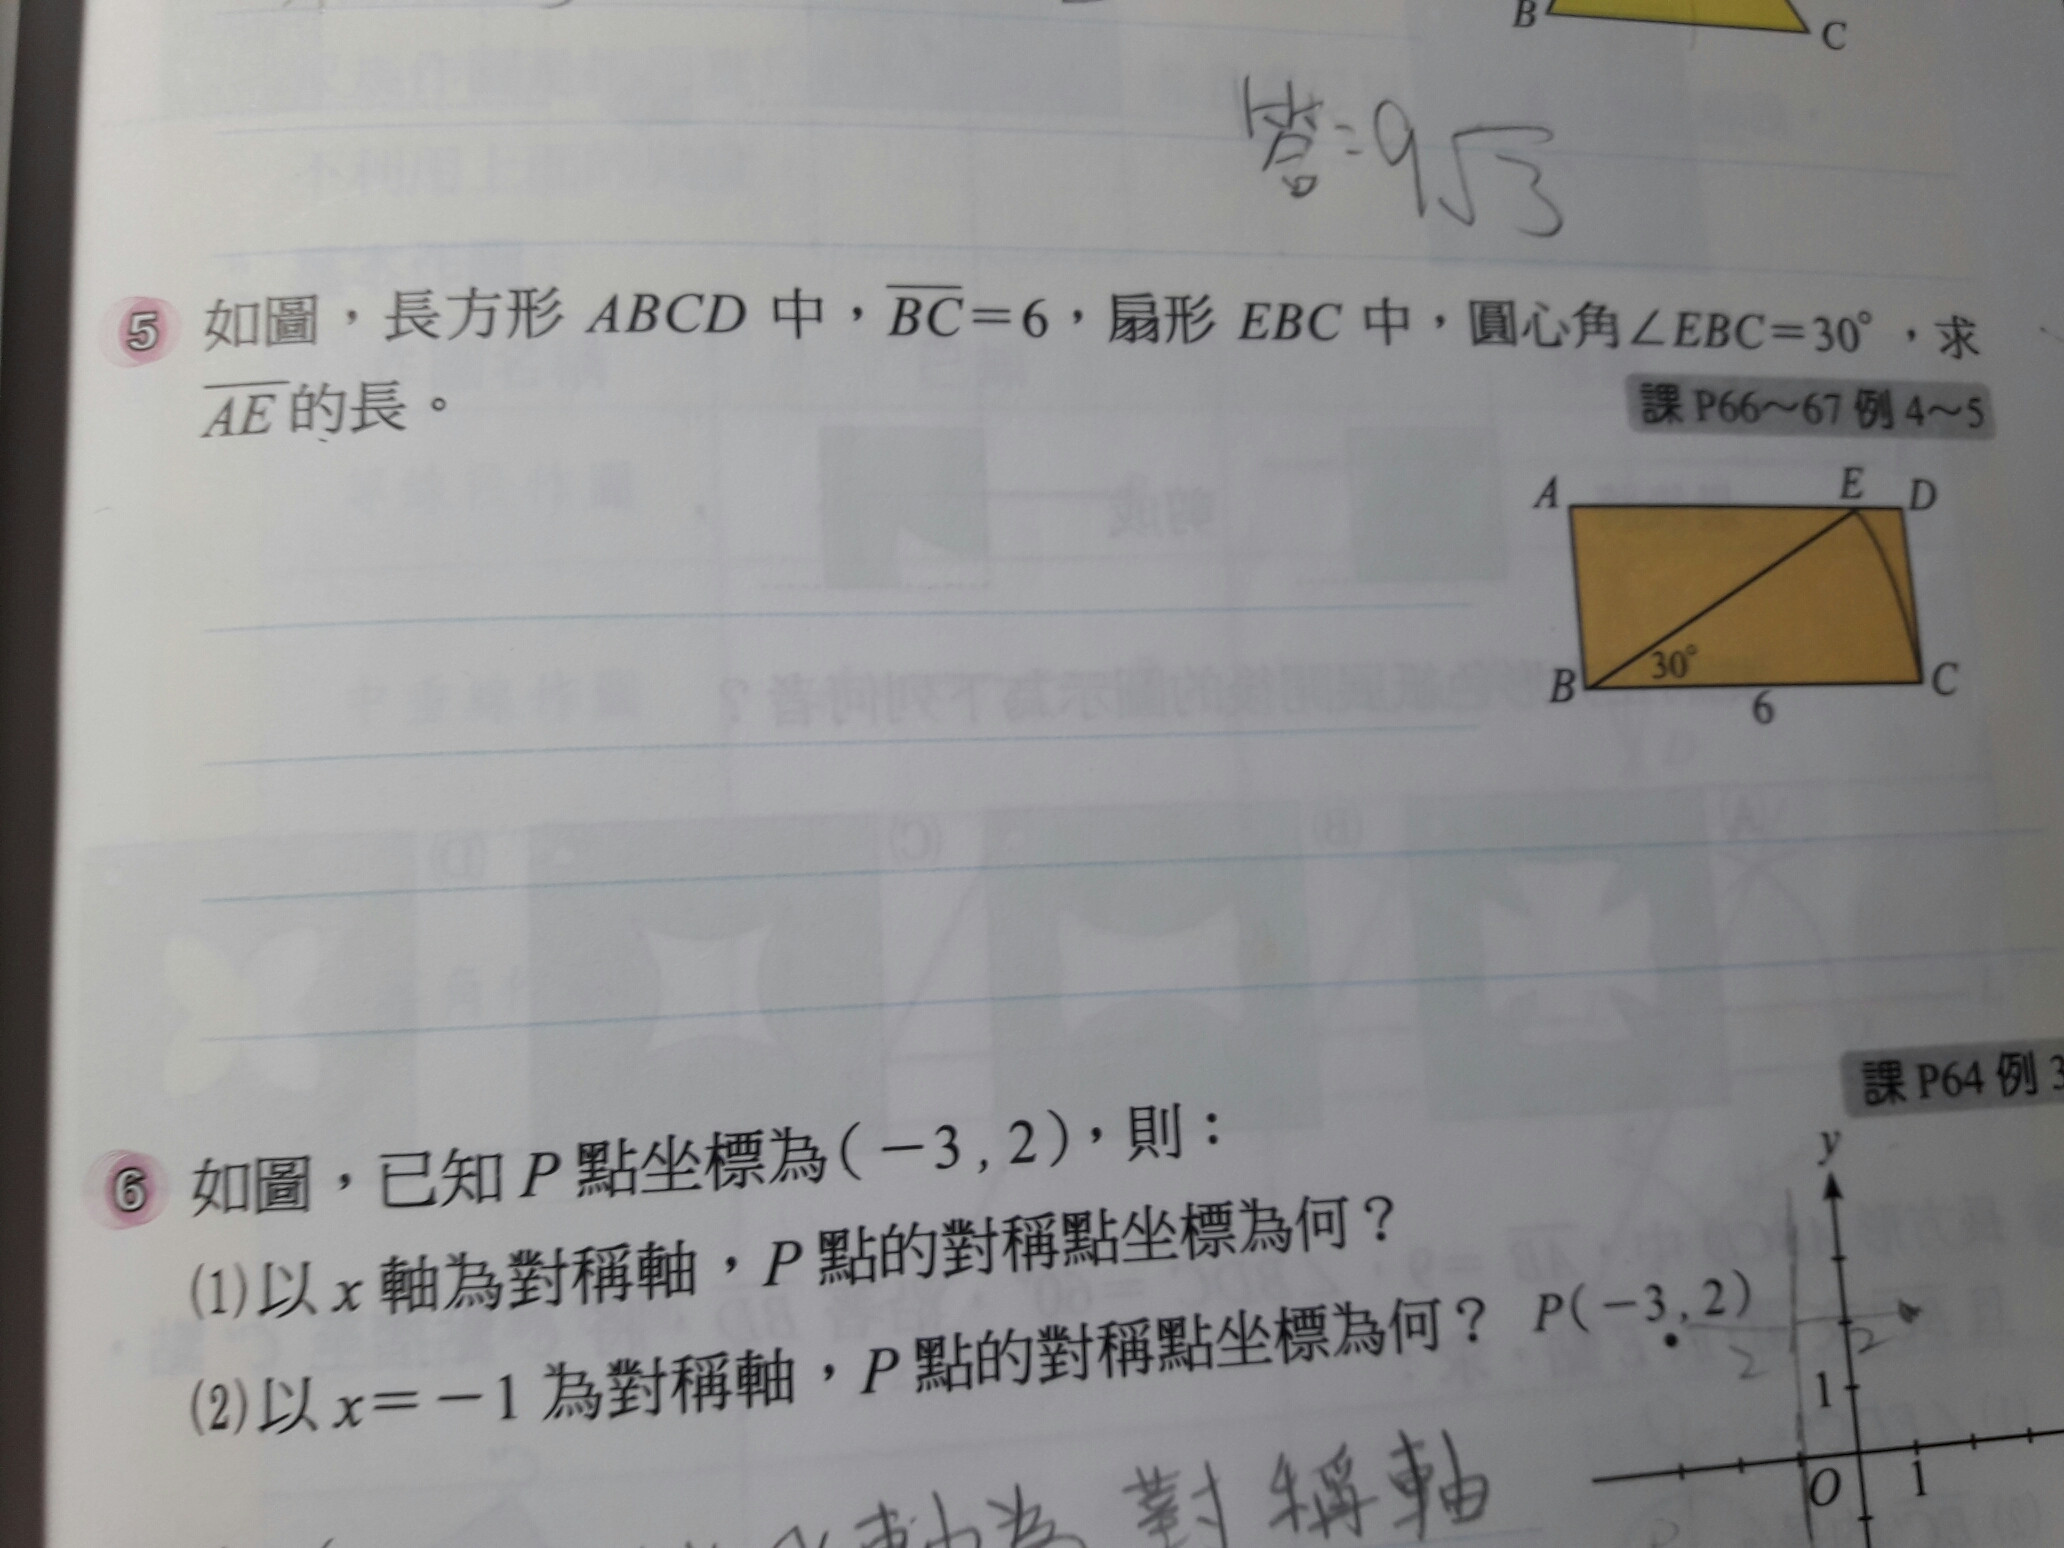 B
C
答=9√3
5 如圖，長方形 ABCD 中，BC=6，扇形 EBC 中，圓心角∠EBC=30°，求
AE的長。
課 P66～67 例 4～5
A E D
30°
B C
6
課 P64 例 3
6 如圖，已知 P 點坐標為(-3,2)，則：
(1)以 x 軸為對稱軸，P 點的對稱點坐標為何？
(2)以 x=-1 為對稱軸，P 點的對稱點坐標為何？
y
P(-3,2)
2 2
1
O 1
軸為對稱軸